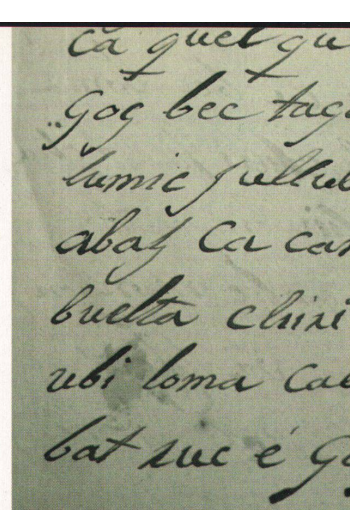 ca quel qu
Gog bec tag
lumic jullub
abaj Ca car
buelta chiri
ubi loma Cal
bat suc é Go